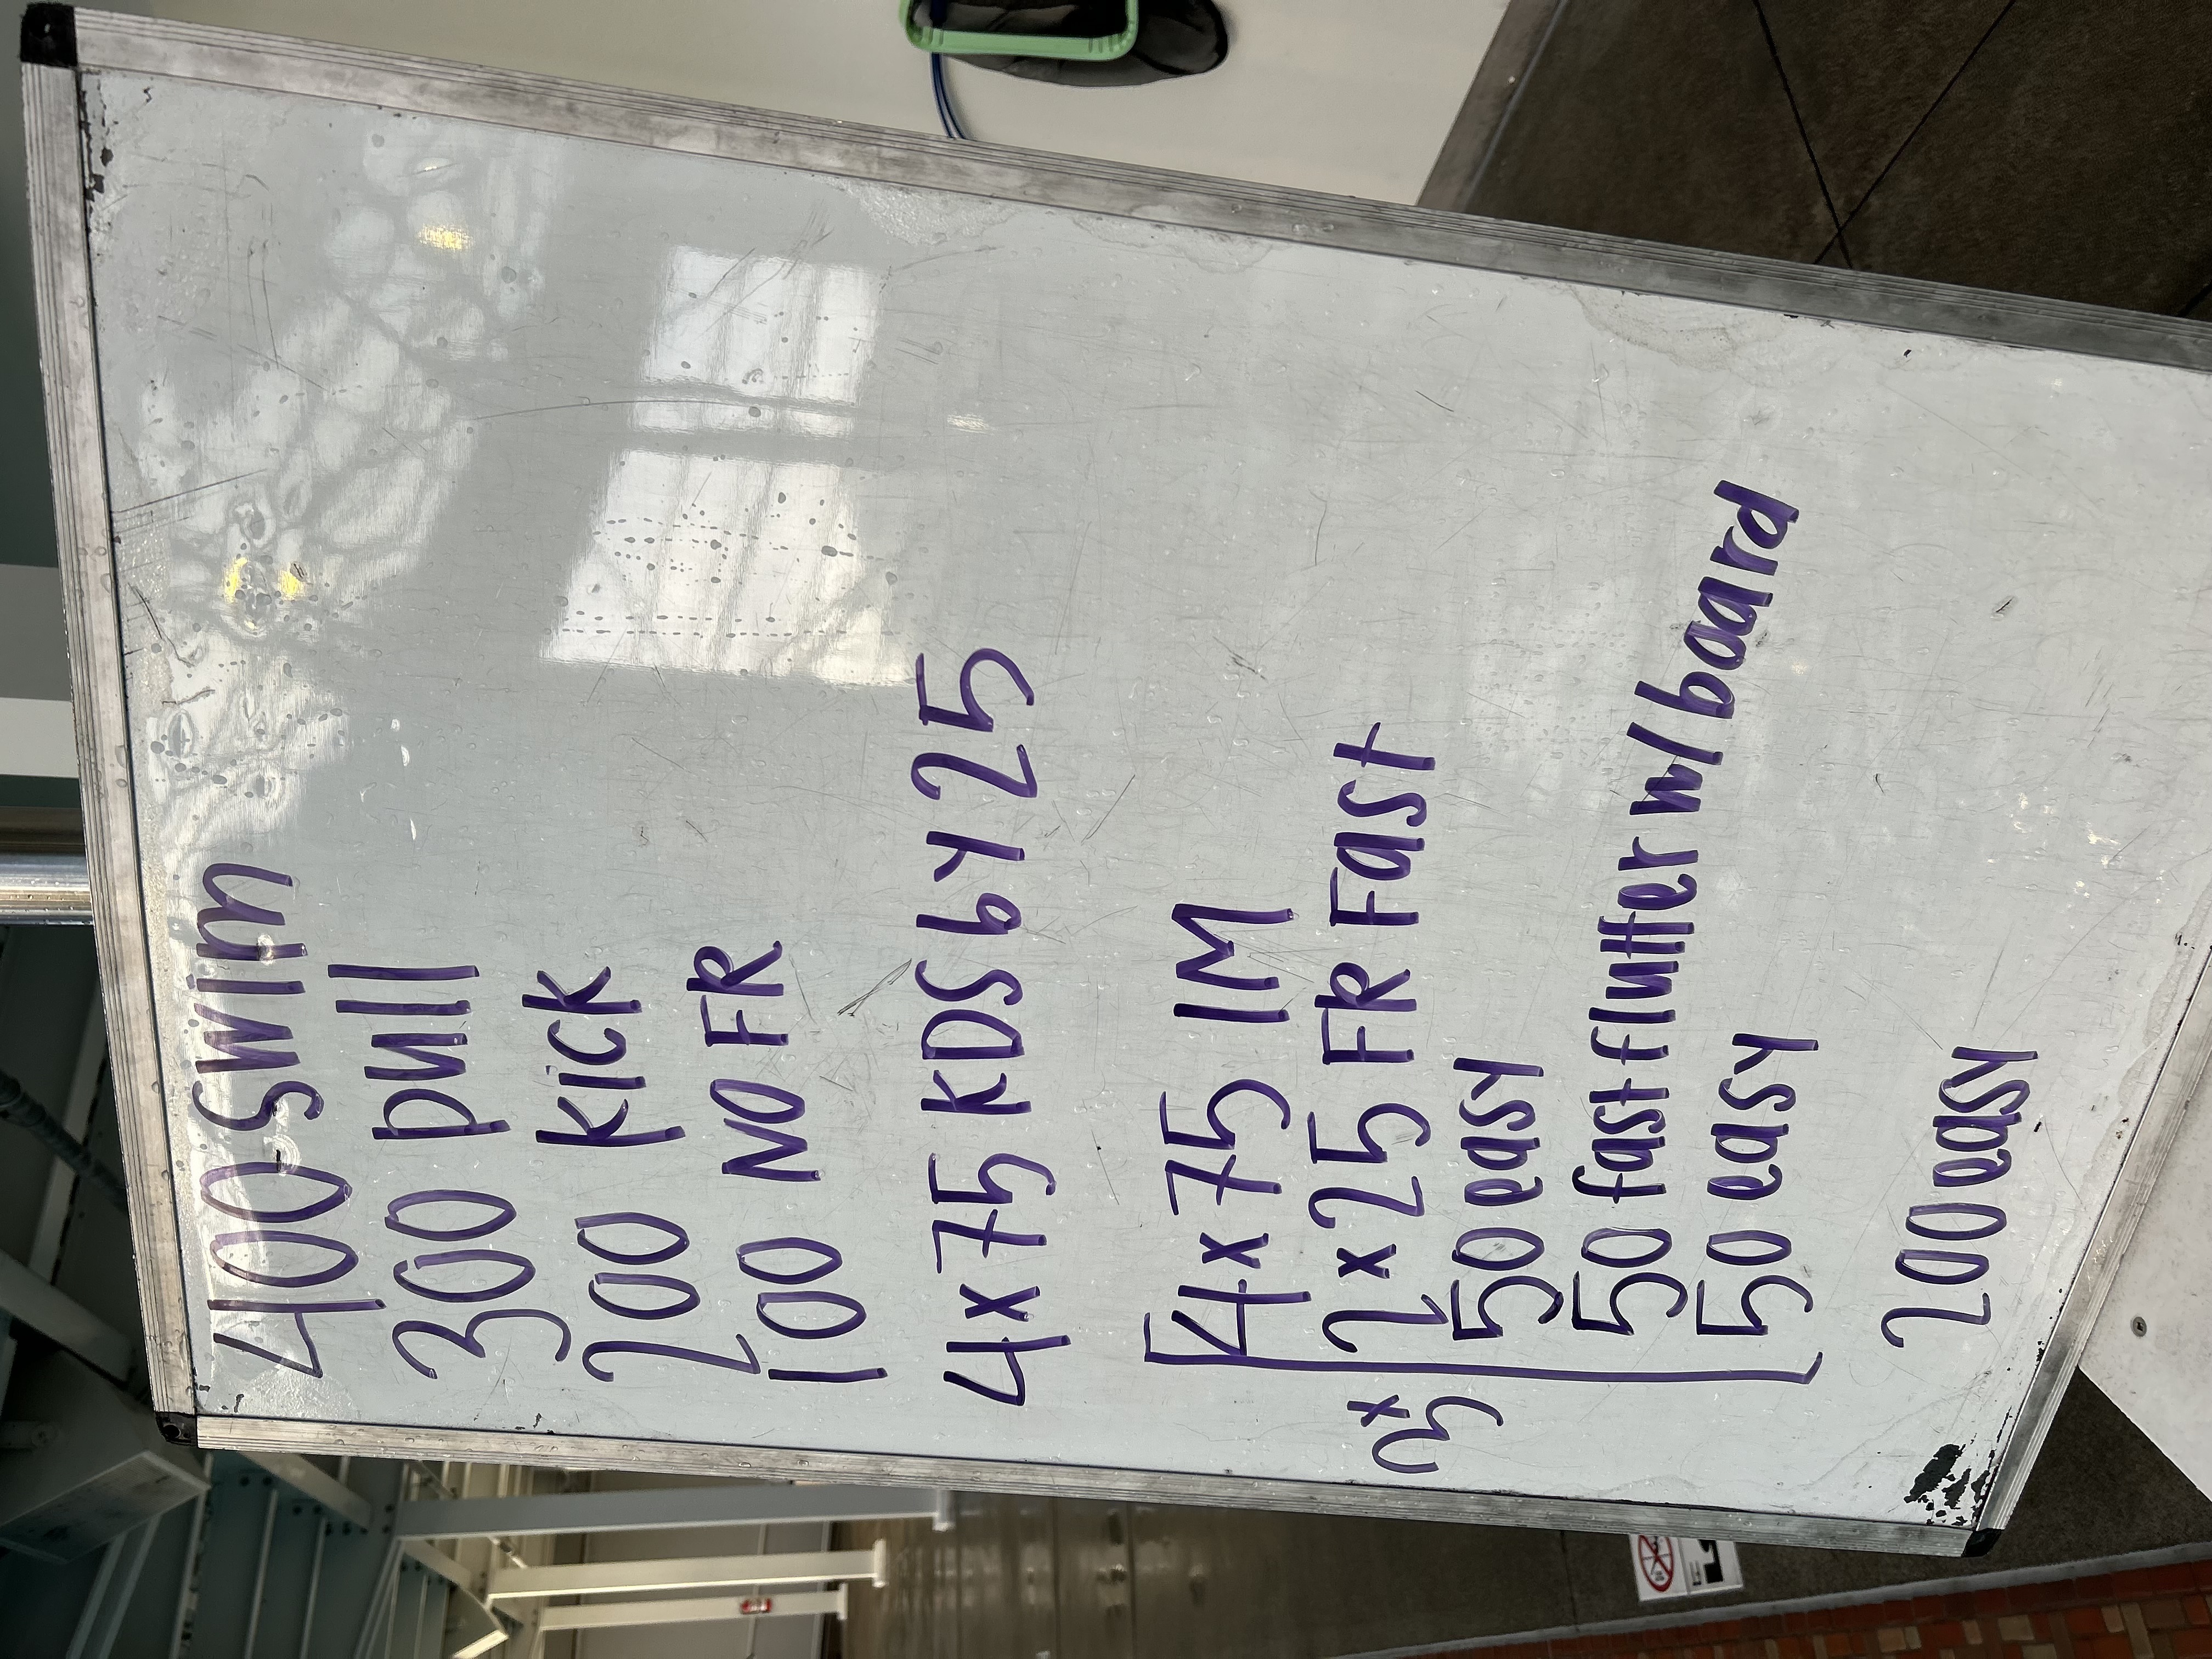 400 swim
300 pull
200 kick
100 NO FR
4x75 KDS by 25
4x75 IM
2x25 FR Fast
3x 50 easy
50 fast flutter w/ board
50 easy
200 easy